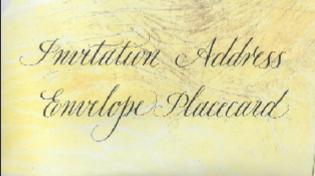 Invitation Address
Envelope Placecard